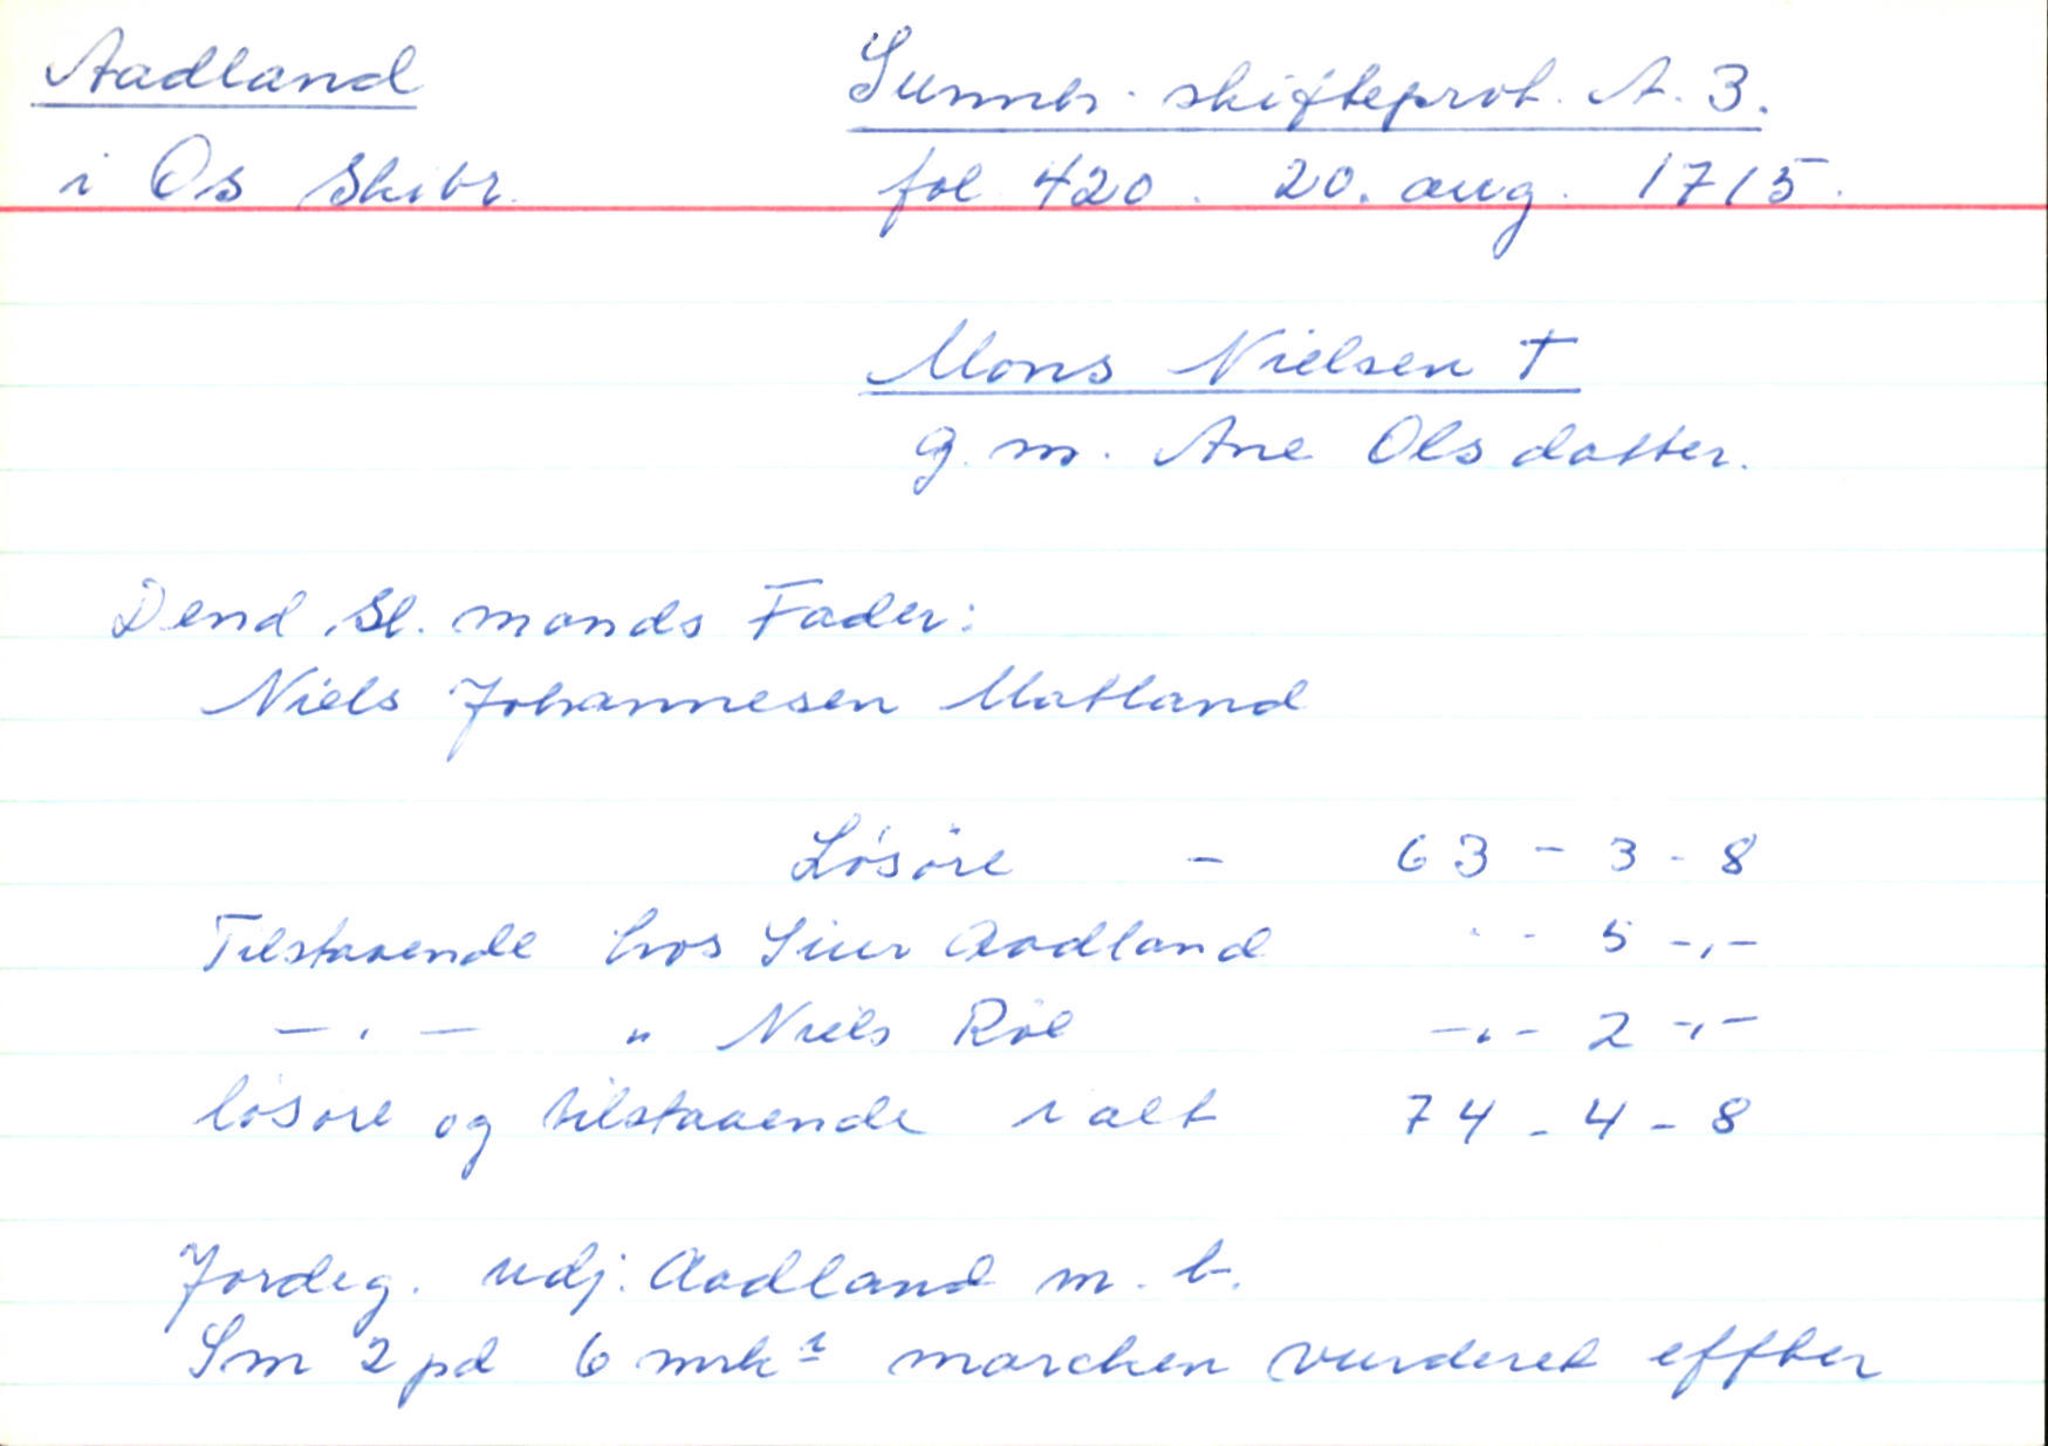 Aadland
Sunnh. skifteprot. A. 3.
i Os Skibr.
fol 420. 20. aug. 1715.
Mons Nielsen †
g. m. Ane Olsdatter.
Dend Sl. mands Fader:
Niels Johannesen Matland
Lösöre - 63 - 3 - 8
Tilstaaende hos Siur Aadland - - 5 -,-
— , — " Niels Röl -,- 2 -,-
lösöre og tilstaaende i alt 74 - 4 - 8
Jordeg. udj. Aadland m. b.
Sm 2 pd 6 mrk: marcken vurderet effter